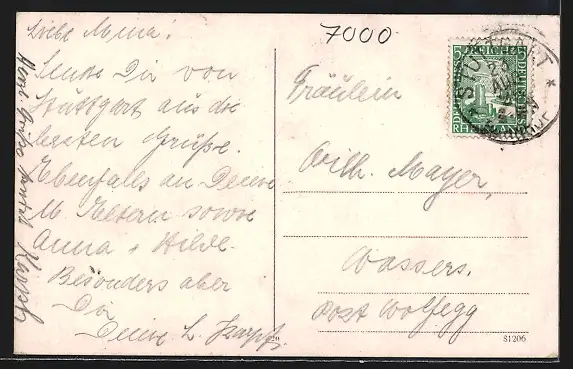 Liebe Mina!
Sende Dir von
Stuttgart aus die
besten Grüße.
Ebenfalls an Deine
lb. Eltern sowie
Anna & Hilde.
Besonders aber
Dir
Deine L.
7000
Fräulein
Wilh. Mayer,
Wassers.
Post Wolfegg
STUTTGART
DEUTSCHES REICH
5
5
RHEINLAND
81206